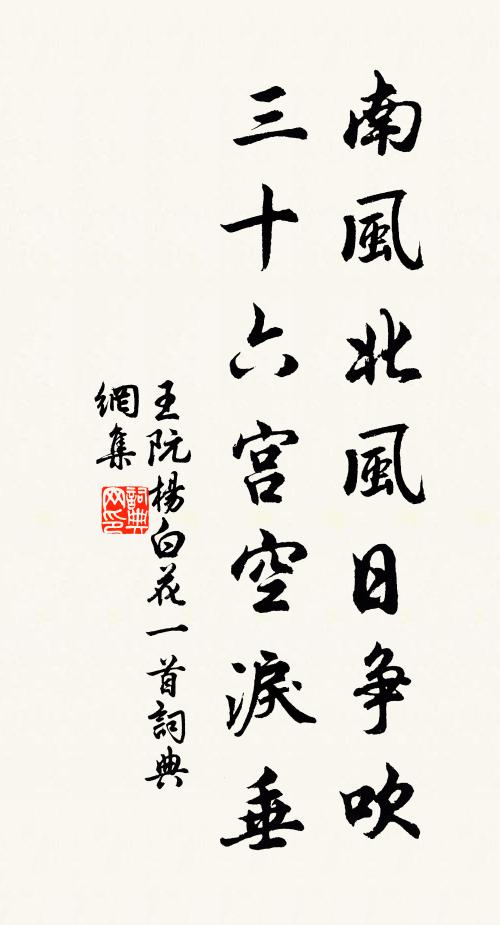 南風北風日爭吹
三十六宮空淚垂
王阮楊白花一首詞典
網集
詞典
网印